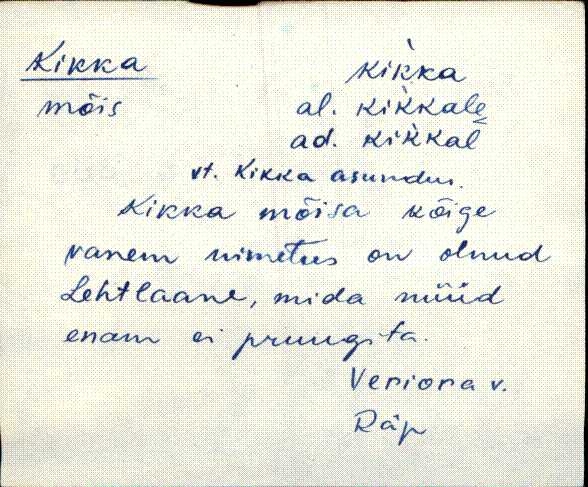 Kikka
mõis
kik̀ka
al. kik̀kalȩ
ad. kik̀kal
vt. Kikka asundus.
Kikka mõisa kõige
vanem nimetus on olnud
Lehtlaane, mida nüüd
enam ei pruugita.
Veriora v.
Räp